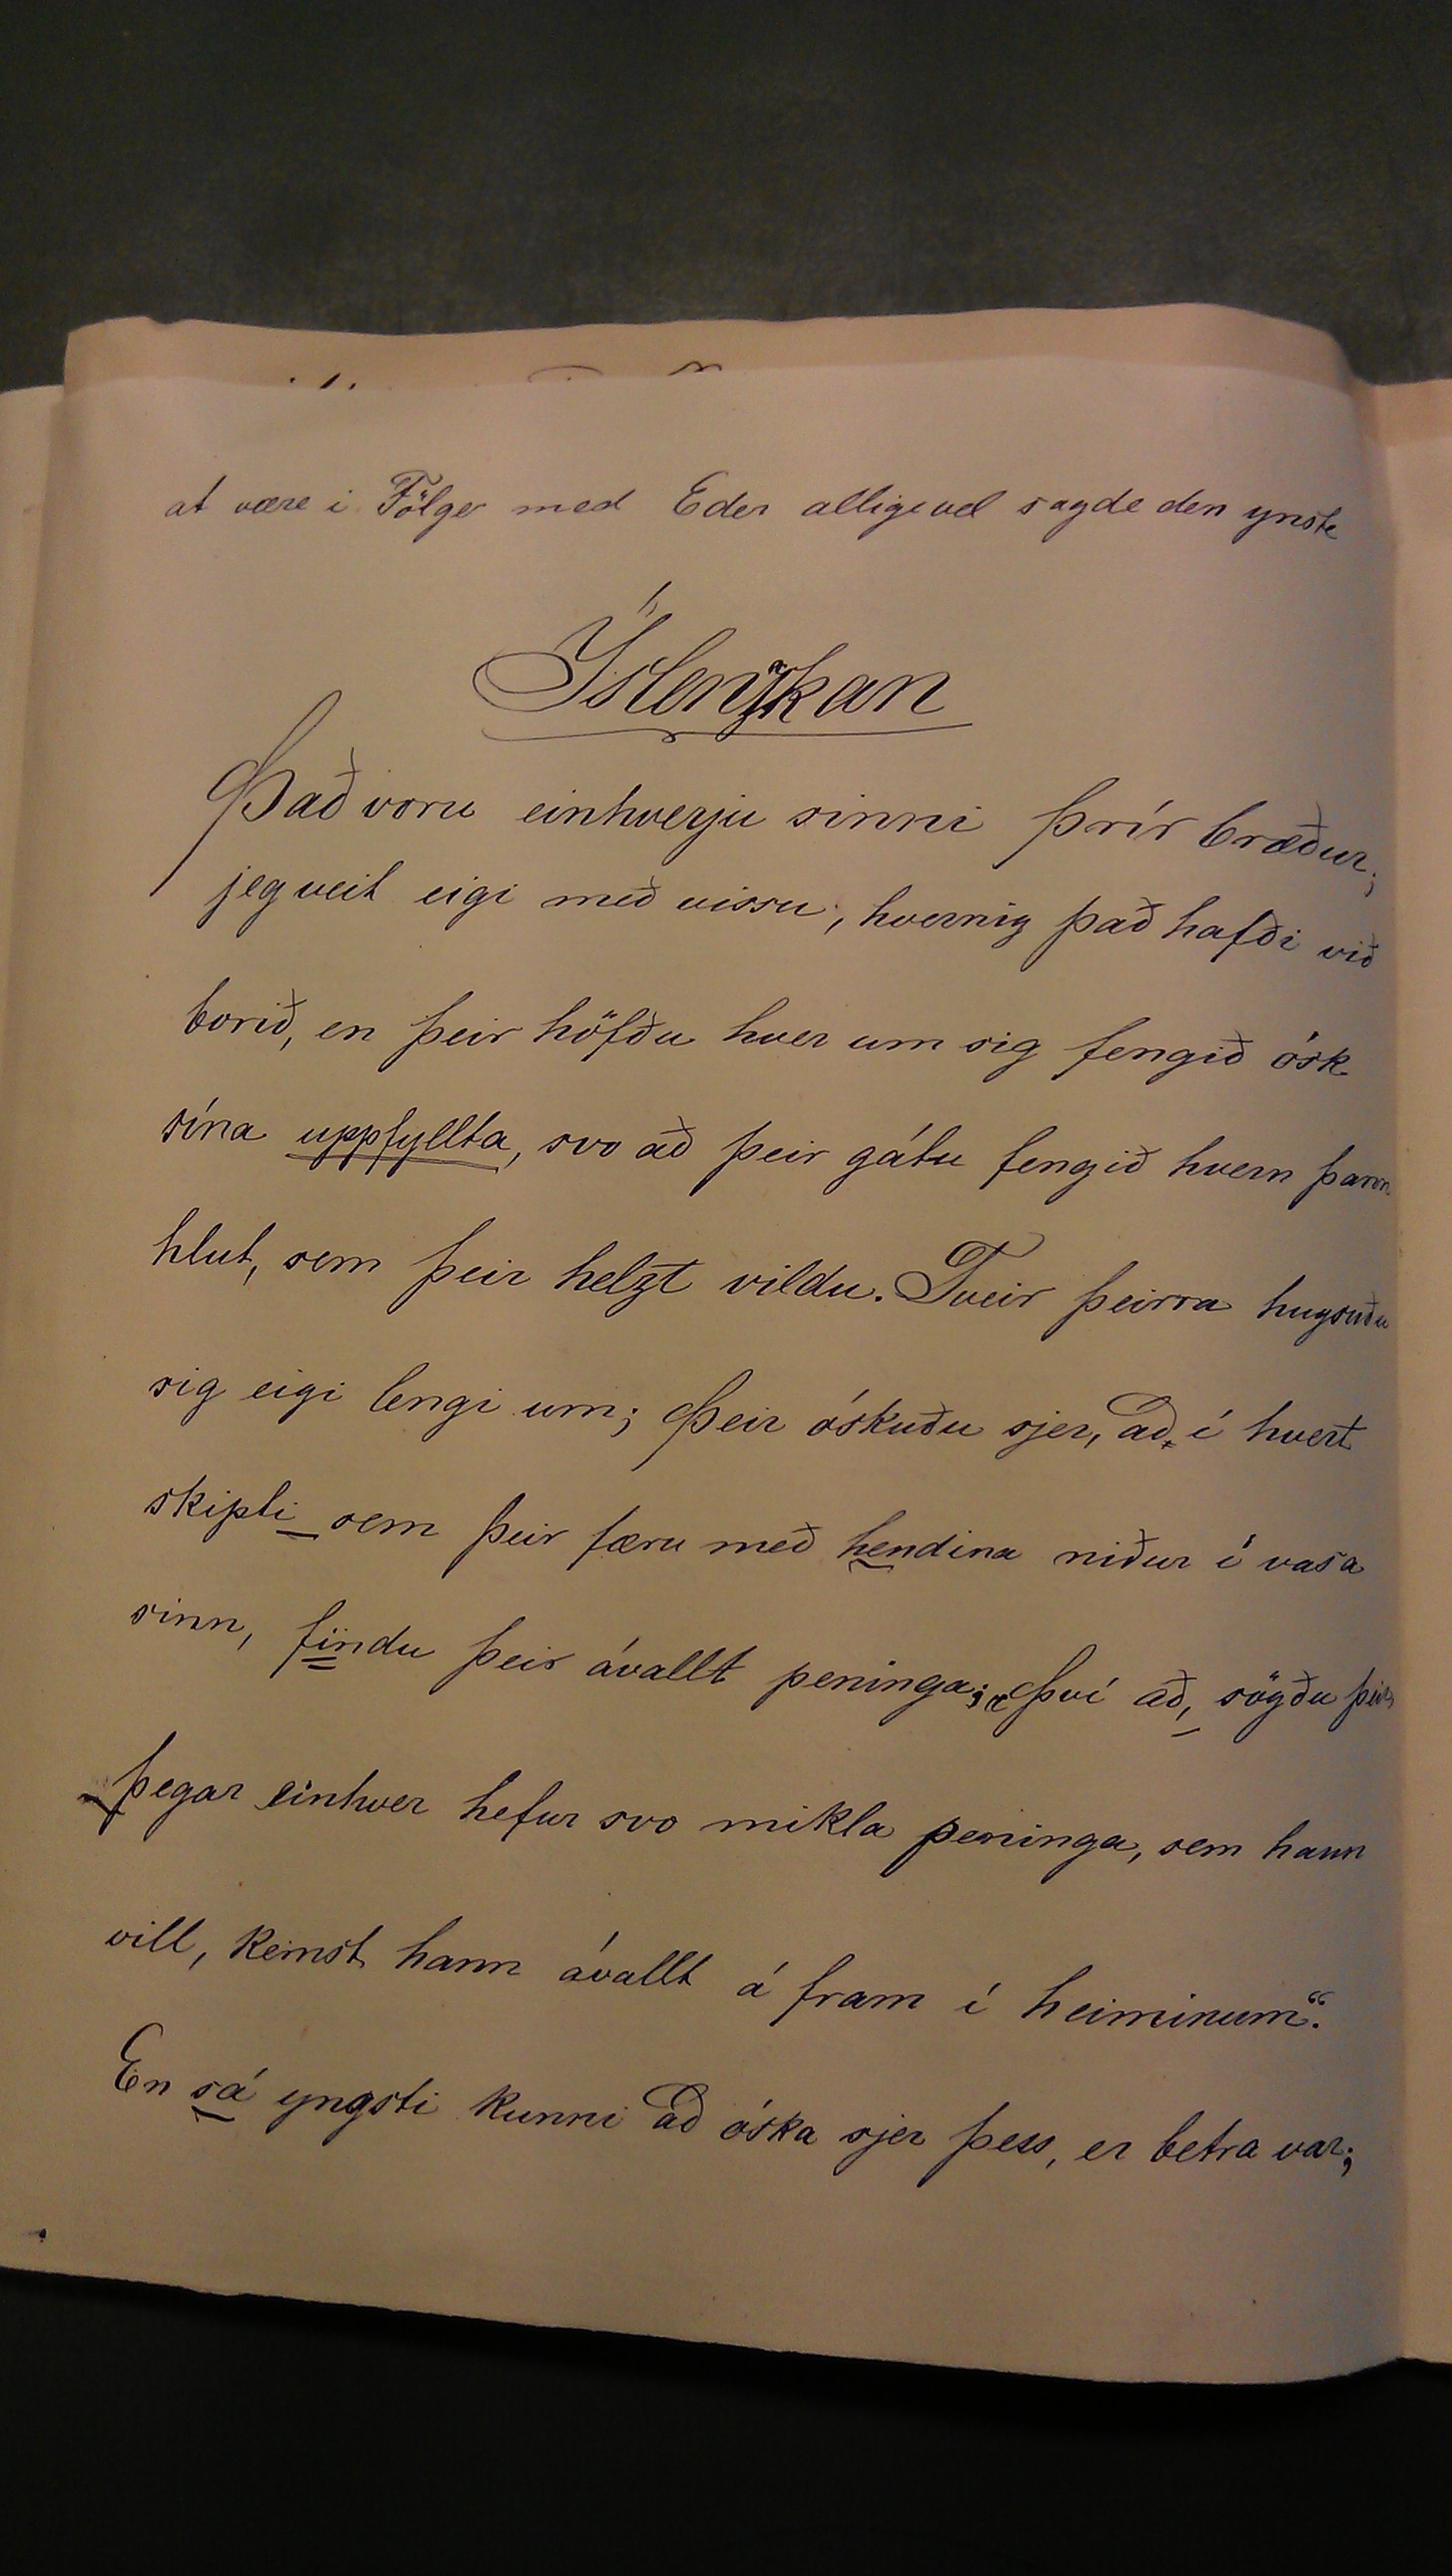 at være i Fölge med Eder alligevel sagde den ynste
Íslenzkan
Það voru einhverju sinni þrír bræður;
jeg veit eigi með vissu, hvernig það hafði við
borið, en þeir höfðu hver um sig fengið ósk
sína uppfyllta, svo að þeir gátu fengið hvern þann
hlut, sem þeir helzt vildu. Tveir þeirra hugsuðu
sig eigi lengi um; Þeir óskuðu sjer, að í hvert
skipti sem þeir færu með hendina niður í vasa
sinn, findu þeir ávallt peninga; „Því að, sögðu þeir,
þegar einhver hefur svo mikla peninga, sem hann
vill, kemst hann ávallt á fram í heiminum“.
En sá yngsti kunni að óska sjer þess, er betra var;